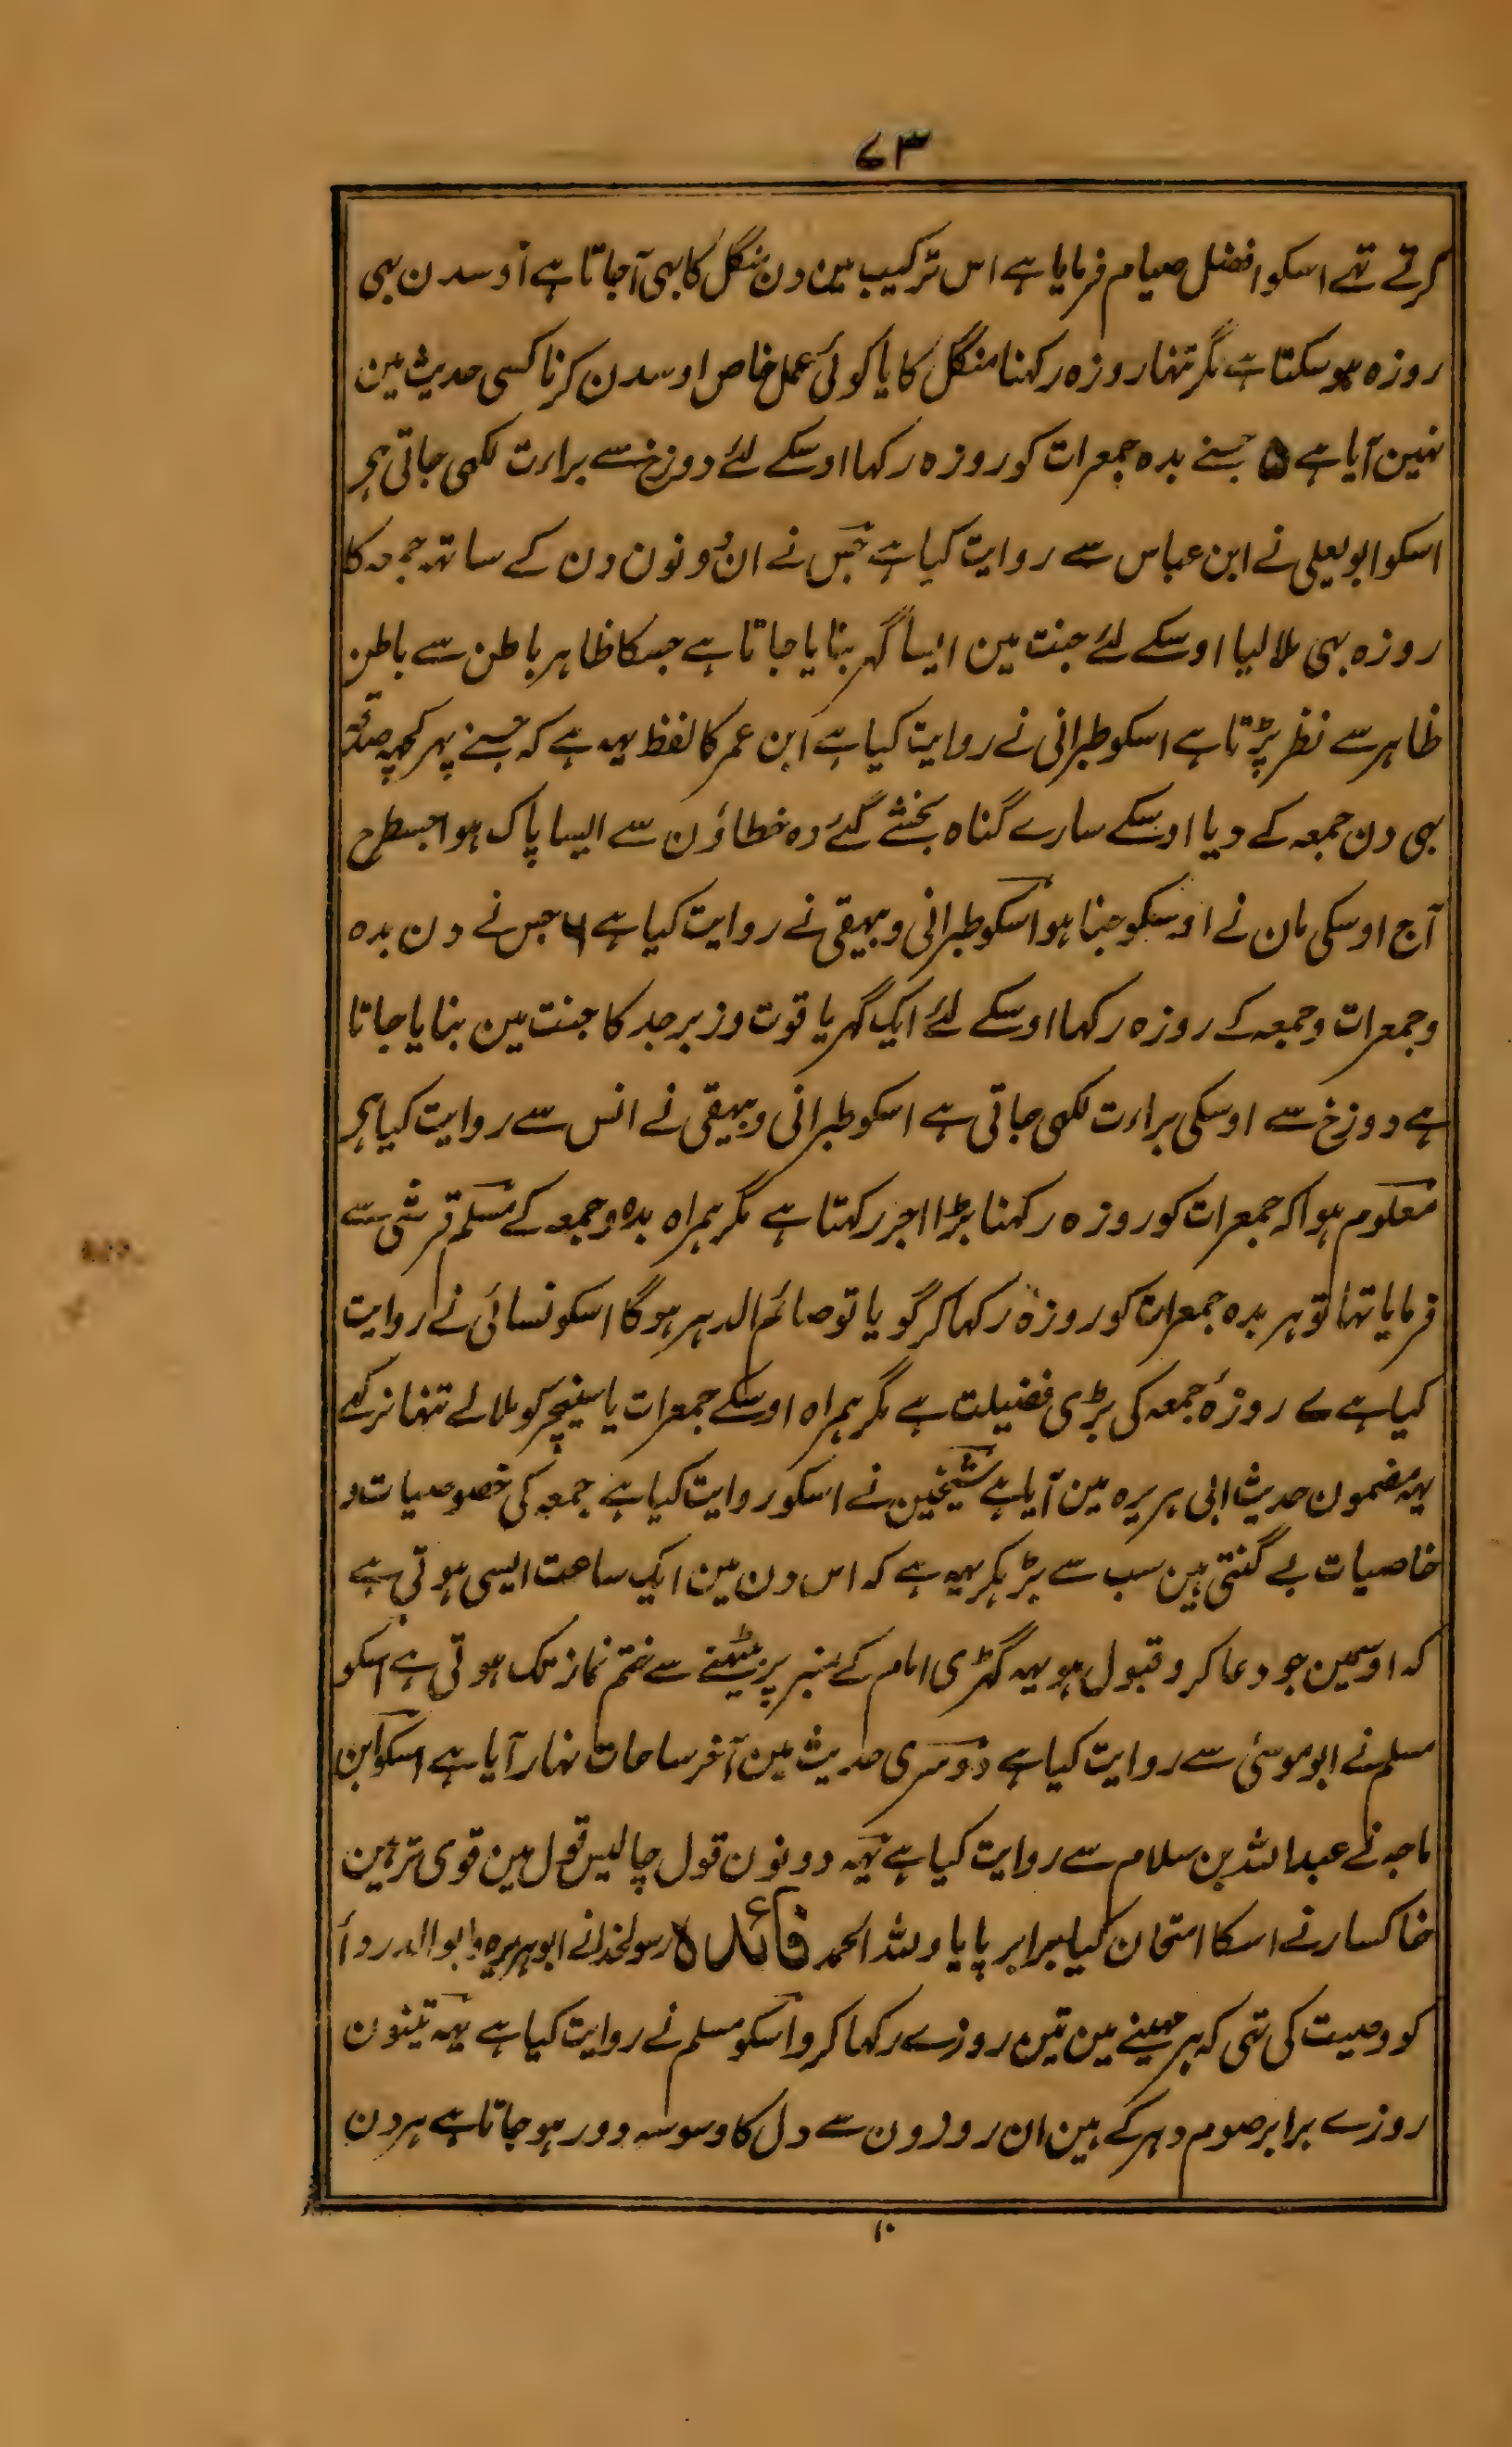 ۷۳
کرتے تہے اسکو افضل صیام فرمایا ہے اس ترکیب مین دن منگل کا بہی آجاتا ہے اوسدن بہی
روزہ ہو سکتا ہے مگر تنہا روزہ رکہنا منگل کا یا کوئی عمل خاص اوسدن کرنا کسی حدیث مین
نہین آیا ہے ۵ جسنے بدہ جمعرات کو روزہ رکہا اوسکے لئے دوزخ سے براءت لکہی جاتی ہی
اسکو ابو یعلی نے ابن عباس سے روایت کیا ہے جس نے ان دونون دن کے ساتہہ جمعہ کا
روزہ بہی ملا لیا اوسکے لئے جنت مین ایسا گہر بنایا جاتا ہے جسکا ظاہر باطن سے باطن
ظاہر سے نظر پڑتا ہے اسکو طبرانی نے روایت کیا ہے ابن عمر کا لفظ یہہ ہے کہ جسنے پہر کچہہ صدقہ
بہی دن جمعہ کے دیا اوسکے سارے گناہ بخشے گئے وہ خطاؤن سے ایسا پاک ہوا جسطرح
آج اوسکی مان نے اوسکو جنا ہو اسکو طبرانی و بیہقی نے روایت کیا ہے ۶ جس نے دن بدہ
و جمعرات و جمعہ کے روزہ رکہا اوسکے لئے ایک گہر یاقوت و زبرجد کا جنت مین بنایا جاتا
ہے دوزخ سے اوسکی براءت لکہی جاتی ہے اسکو طبرانی و بیہقی نے انس سے روایت کیا ہی
معلوم ہوا کہ جمعرات کو روزہ رکہنا بڑا اجر رکہتا ہے مگر ہمراہ بدہ و جمعہ کے مسلم قرشی سے
فرمایا تہا تو ہر بدہ جمعرات کو روزہ رکہا کر گویا تو صائم الدہر ہوگا اسکو نسائی نے روایت
کیا ہے ۷ روزۂ جمعہ کی بڑی فضیلت ہے مگر ہمراہ اوسکے جمعرات یا سنیچر کو ملا لے تنہا نرکہے
یہہ مضمون حدیث ابی ہریرہ مین آیا ہے شیخین نے اسکو روایت کیا ہے جمعہ کی خصوصیات و
خاصیات بے گنتی ہین سب سے بڑہکر یہہ ہے کہ اس دن مین ایک ساعت ایسی ہوتی ہے
کہ اوسمین جو دعا کرو قبول ہو یہہ گہڑی امام کے منبر پر بیٹہنے سے ختم نماز تک ہوتی ہے اسکو
مسلم نے ابو موسیٰ سے روایت کیا ہے دوسری حدیث مین آخر ساعات نہار آیا ہے اسکو ابن
ماجہ نے عبد اللہ بن سلام سے روایت کیا ہے یہہ دونون قول چالیس قول مین قوی تر ہین
خاکسار نے اسکا امتحان کیا برابر پایا وللہ الحمد فائدہ رسولخدا نے ابو ہریرہ و ابو الدرداً
کو وصیت کی تہی کہ ہر مہینے مین تین روزے رکہا کرو اسکو مسلم نے روایت کیا ہے یہہ تینون
روزے برابر صوم دہر کے ہین ان روزون سے دل کا وسوسہ دور ہو جاتا ہے ہر دن
۱۰